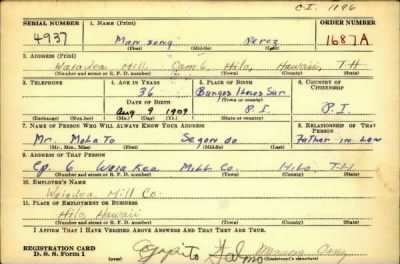 C.I. 1196
SERIAL NUMBER 1. NAME (Print) ORDER NUMBER
4937 Mansong Perez 1687A
(First) (Middle) (Last)
2. ADDRESS (Print)
Waiakea Mill Camp 6, Hilo, Hawaii, T.H
(Number and street or R. F. D. number) (Town) (County) (State)
3. TELEPHONE 4. AGE IN YEARS 5. PLACE OF BIRTH 6. COUNTRY OF CITIZENSHIP
36 Burgos Ilocos Sur
DATE OF BIRTH (Town or county)
Aug 9 1909 P.I. P.I.
(Exchange) (Number) (Mo.) (Day) (Yr.) (State or country)
7. NAME OF PERSON WHO WILL ALWAYS KNOW YOUR ADDRESS 8. RELATIONSHIP OF THAT PERSON
Mr. Father in Law
(Mr., Mrs., Miss) (First) (Middle) (Last)
9. ADDRESS OF THAT PERSON
Cp. 6 Waiakea Mill Co Hilo, T.H
(Number and street or R. F. D. number) (Town) (County) (State)
10. EMPLOYER'S NAME
Waiakea Mill Co
11. PLACE OF EMPLOYMENT OR BUSINESS
Hilo, Hawaii
(Number and street or R. F. D. number) (Town) (County) (State)
I AFFIRM THAT I HAVE VERIFIED ABOVE ANSWERS AND THAT THEY ARE TRUE.
REGISTRATION CARD
D. S. S. Form 1 (over) (Registrant's signature)